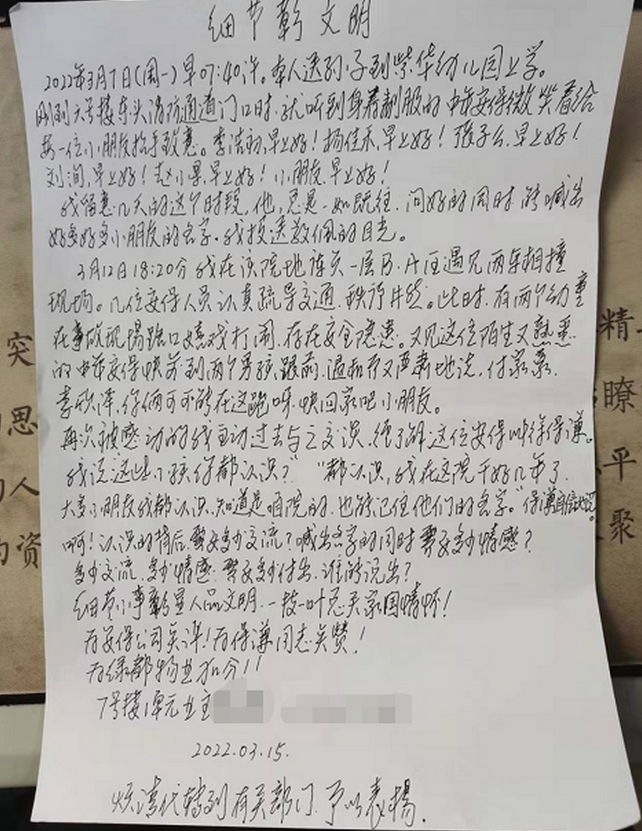 细节彰文明
2022年3月7日(周一)早07:40许。本人送孙子到紫华幼儿园上学。
刚到六号楼东头消防通道门口时,就听到身着制服的中年安保微笑着给
每一位小朋友招手致意。李浩羽,早上好!杨佳禾,早上好!张子么,早上好!
刘洵,早上好!赵小果,早上好!小朋友,早上好!
我留意几天的这个时段,他,总是一如既往,问好的同时,能喊出
好多好多小朋友的名字。我投送敬佩的目光。
3月12日18:20分我在该院地库负一层B、A区遇见两车相撞
现场。几位安保人员认真疏导交通,秩序井然。此时,有两个幼童
在事故现场路口嬉戏打闹,存在安全隐患。又见这位陌生又熟悉
的中年安保快步到两个男孩跟前,温和而又严肃地说,付家豪、
李欣泽,你俩可不能在这跑呀,快回家吧小朋友。
再次被感动的我主动过去与之交谈,得了解这位安保叫徐保谦。
我说"这些小孩你都认识?""都认识,我在这院干好几年了,
大多小朋友我都认识,知道是咱院的,也能记住他们的名字。"保谦自信地说。
啊!认识的背后,要多少交流?喊出名字的同时要多少情感?
多少交流,多少情感,要多少付出,谁能说出?
细节小事彰显人品文明,一枝一叶总关家国情怀!
为安保公司点评!为保谦同志点赞!
为绿都物业加分!!
7号楼1单元业主
2022.03.15.
烦请代转到有关部门,予以表扬。
突
思
人
的资
精
瞭
平
聚